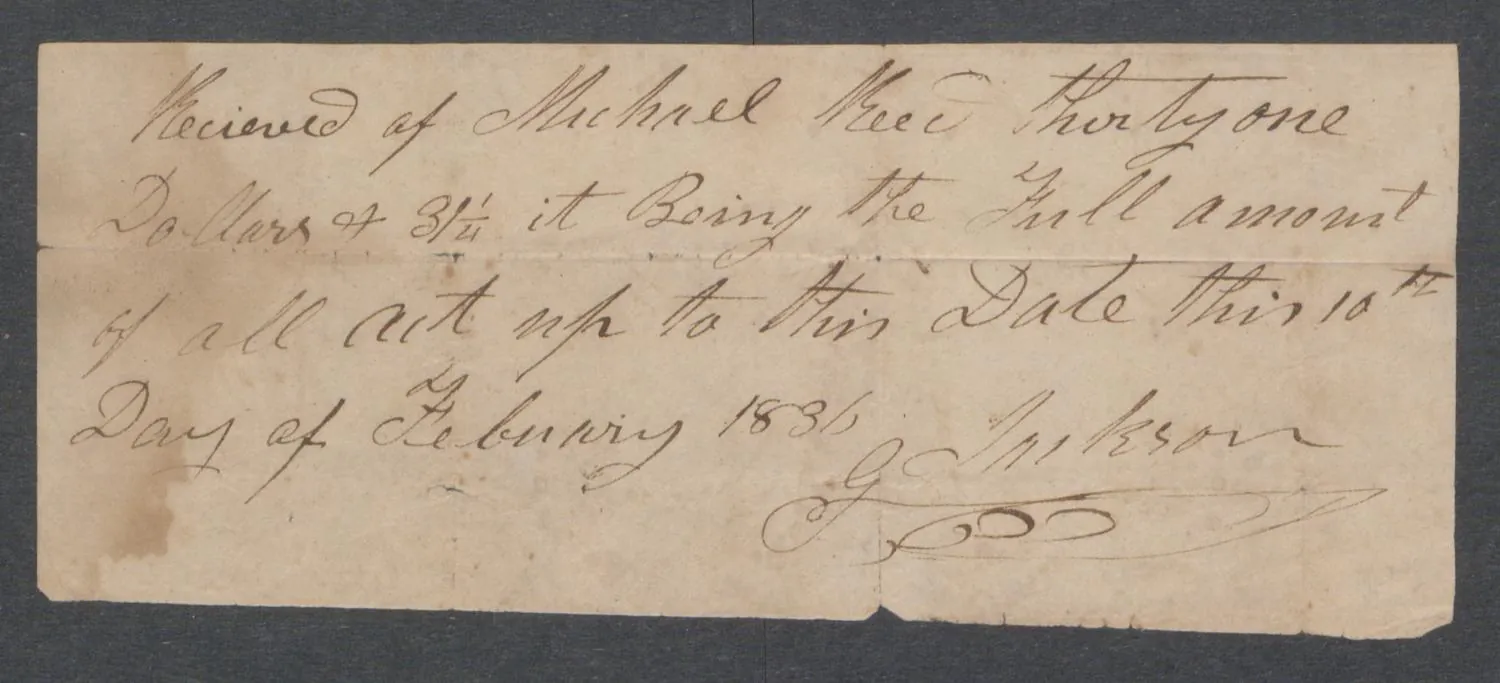 Recieved of Michael Reed Thirty one
Dollars & 31/4 it Being the Full amount
of all act up to this Date this 10th
Day of Febuary 1836
G Jackson